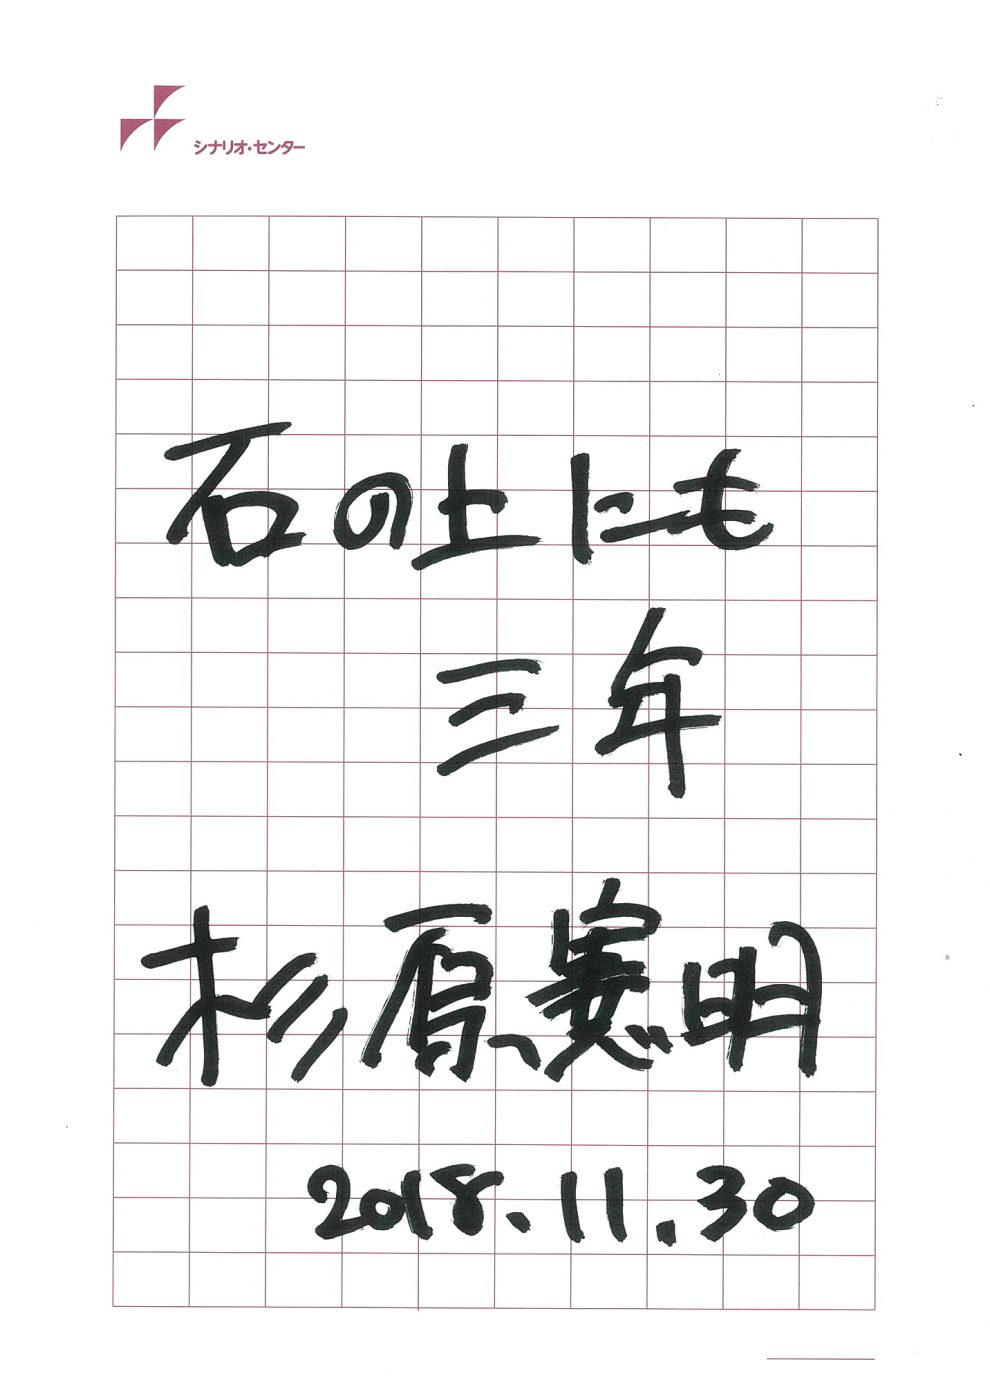 シナリオ・センター
石の上にも
三年
杉原憲明
2018.11.30